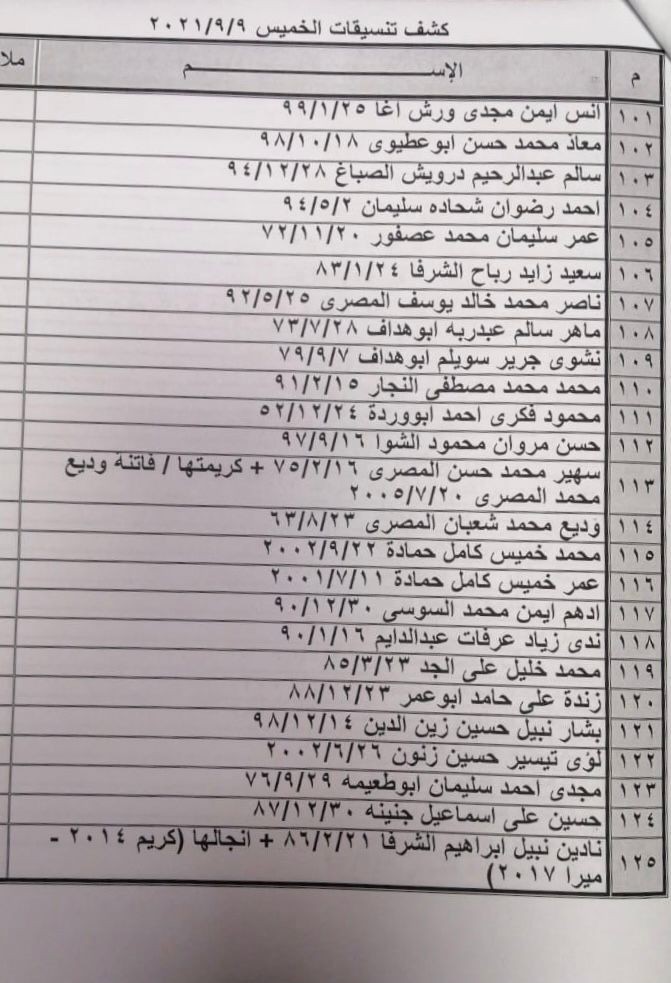 كشف تنسيقات الخميس ٢٠٢١/٩/٩
م الإســـــــــم ملا
١٠١ انس ايمن مجدى ورش اغا ٩٩/١/٢٥
١٠٢ معاذ محمد حسن ابوعطيوى ٩٨/١٠/١٨
١٠٣ سالم عبدالرحيم درويش الصباغ ٩٤/١٢/٢٨
١٠٤ احمد رضوان شحاده سليمان ٩٤/٥/٢
١٠٥ عمر سليمان محمد عصفور ٧٢/١١/٢٠
١٠٦ سعيد زايد رباح الشرفا ٨٣/١/٢٤
١٠٧ ناصر محمد خالد يوسف المصرى ٩٢/٥/٢٥
١٠٨ ماهر سالم عبدربه ابوهداف ٧٣/٧/٢٨
١٠٩ نشوى جرير سويلم ابوهداف ٧٩/٩/٧
١١٠ محمد محمد مصطفى النجار ٩١/٢/١٥
١١١ محمود فكرى احمد ابووردة ٥٢/١٢/٢٤
١١٢ حسن مروان محمود الشوا ٩٧/٩/١٦
١١٣ سهير محمد حسن المصرى ٧٥/٢/١٦ + كريمتها / فاتنة وديع
محمد المصرى ٢٠٠٥/٧/٢٠
١١٤ وديع محمد شعبان المصرى ٦٣/٨/٢٣
١١٥ محمد خميس كامل حمادة ٢٠٠٢/٩/٢٢
١١٦ عمر خميس كامل حمادة ٢٠٠١/٧/١١
١١٧ ادهم ايمن محمد السوسى ٩٠/١٢/٣٠
١١٨ ندى زياد عرفات عبدالدايم ٩٠/١/١٦
١١٩ محمد خليل على الجد ٨٥/٣/٢٣
١٢٠ زندة على حامد ابوعمر ٨٨/١٢/٢٣
١٢١ بشار نبيل حسين زين الدين ٩٨/١٢/١٤
١٢٢ لؤى تيسير حسين زنون ٢٠٠٢/٦/٢٦
١٢٣ مجدى احمد سليمان ابوطعيمه ٧٦/٩/٢٩
١٢٤ حسين على اسماعيل جنينه ٨٧/١٢/٣٠
١٢٥ نادين نبيل ابراهيم الشرفا ٨٦/٢/٢١ + انجالها (كريم ٢٠١٤ -
ميرا ٢٠١٧)